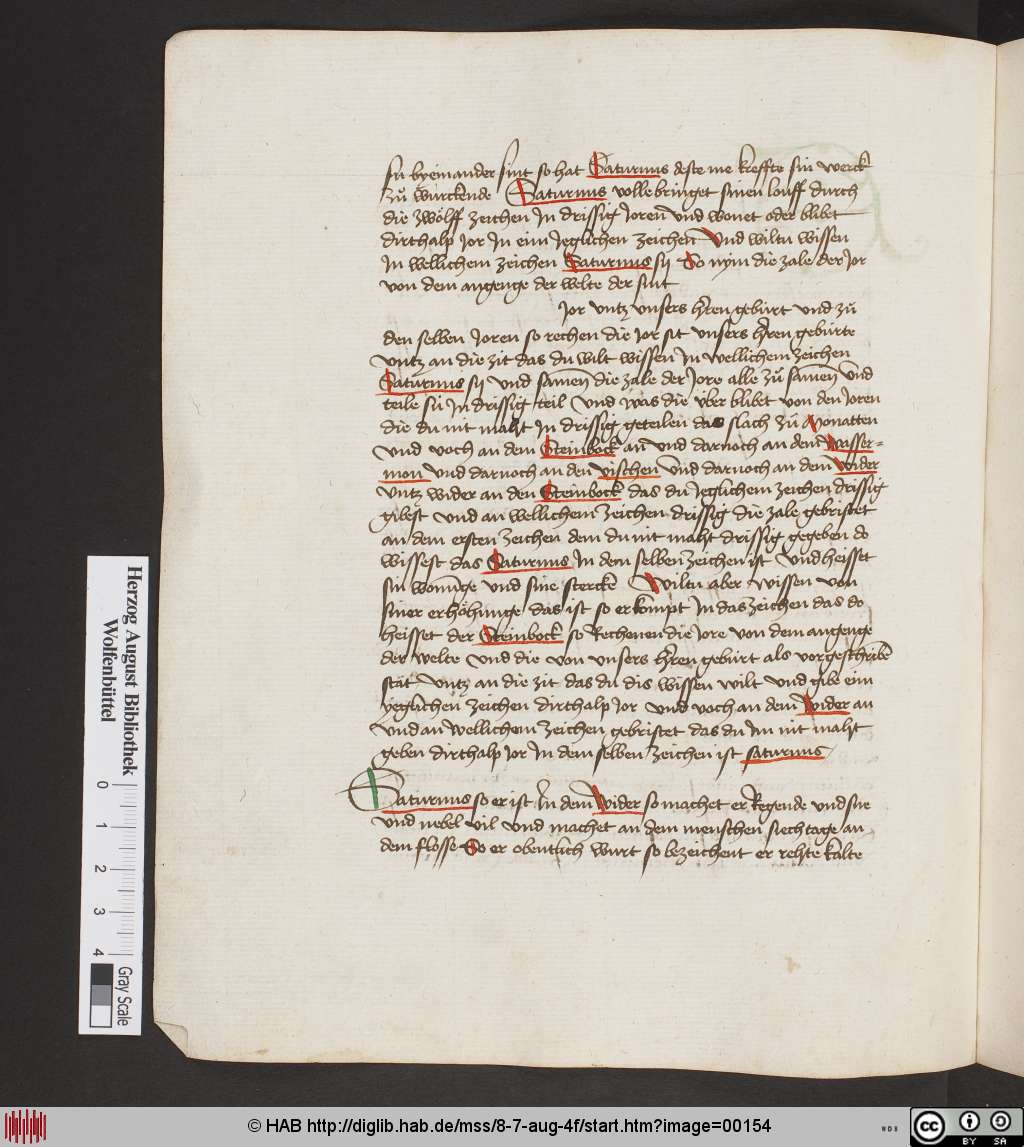 sú byeinander sint so hat Saturnus deste me kreffte sin werck
zů würckende Saturnus vollebringet sinen louff durch
die zwölff zeichen Jn drissig Joren vnd wonet oder blibet
dirthalp Jor Jn eim Jeglichen zeichen Vnd wiltu wissen
Jn wellichem zeichen Saturnus sÿ So nÿm die zale der Jor
von dem angenge der welte der sint
Jor vntz vnsers h̄ren gebürt vnd zů
den selben Joren so rechen die Jor sit vnsers h̄ren gebürte
vntz an die zit das du wilt wissen Jn wellichem zeichen
Saturnus sÿ vnd samen die zale der Jore alle zů samen vnd
teile sú Jn drissig teil vnd was die vber blibet von den Joren
die du nit maht Jn drissig geteilen das slach zů Monatten
vnd voch an dem Steinbock an vnd darnoch an dem Wasser=
man vnd darnoch an den vischen vnd darnoch an dem wider
vntz wider an den Steinbock das du Jeglichem zeichen drissig
gibest vnd an wellichem zeichen drissig die zale gebristet
an dem ersten zeichen dem du nit maht drissig gegeben do
wissest das Saturnus Jn dem selben zeichen ist vnd heisset
sin wonūge vnd sine stercke Wiltu aber wissen von
siner erhöhunge das ist so er kompt Jn das zeichen das do
heisset der Steinbock so Rechenen die Jore von dem angenge
der welte vnd die von vnsers h̄ren gebürt als vorgeschriben
stat vntz an die zit das du dis wissen wilt vnd gibe eim
yeglichen zeichen dirthalp Jor vnd voch an dem Wider an
vnd an wellichem zeichen gebristet das du Jm nit maht
geben dirthalp Jor Jn dem selben zeichen ist saturnus
Saturnus so er ist Jn dem Wider so machet er Regende vnd sne
vnd nebel vil vnd machet an dem menschen siechtage an
dem flosse So er obentlich wurt so bezeichent er rehte kalte
Herzog August Bibliothek
Wolfenbüttel
0 1 2 3 4
Gray Scale
© HAB http://diglib.hab.de/mss/8-7-aug-4f/start.htm?image=00154
WDB
cc BY SA